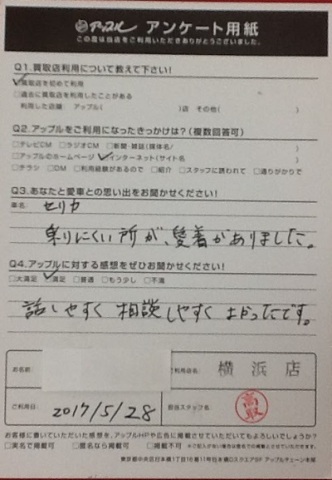 アップル アンケート用紙
この度は当店をご利用いただきありがとうございました。
Q1.買取店利用について教えて下さい!
□買取店を初めて利用
□過去に買取店を利用したことがある
利用した店舗: アップル( )店 その他( )
Q2.アップルをご利用になったきっかけは?(複数回答可)
□テレビCM □ラジオCM □新聞・雑誌(媒体名/ )
□アップルのホームページ □インターネット(サイト名 )
□チラシ □DM □利用経験があるので □紹介 □スタッフに誘われて □通りがかりで
Q3.あなたと愛車との思い出をお聞かせください!
車名: セリカ
乗りにくい所が、愛着がありました。
Q4.アップルに対する感想をぜひお聞かせください!
□大満足 □満足 □普通 □もう少し □不満
話しやすく 相談しやすく よかったです。
お名前:
ご利用店名: 横浜店
ご利用日: 2017/5/28
担当スタッフ名 高取
お客様に書いていただいた感想を、アップルHPや広告に掲載させていただいてもよろしいでしょうか?
□実名で掲載可 □匿名なら掲載可 □掲載不可